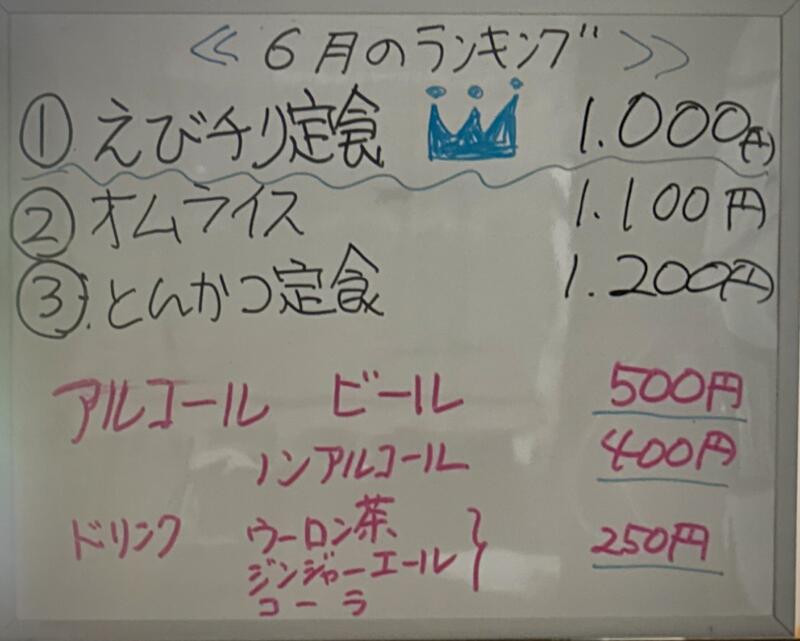 ≪ 6月のランキング ≫
① えびチリ定食 1.000円
② オムライス 1.100円
③ とんかつ定食 1.200円
アルコール ビール 500円
ノンアルコール 400円
ドリンク ウーロン茶、 250円
ジンジャーエール
コーラ